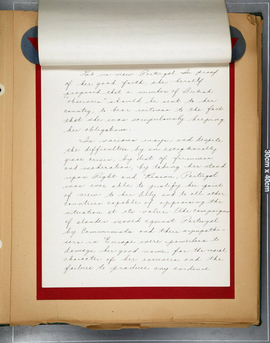 But in view Portugal, in proof
of her good faith, she herself
proposed that a number of British
"observers" should be sent to her
country to bear witness to the fact
that she was scrupulously keeping
her obligations.
In various ways and despite
the difficulties by an exceptionally
grave crisis, by dint of firmness
and moderation, by taking her stand
upon Right and Reason, Portugal
was ever able to justify her point
of view to her Ally and to all other
countries capable of appraising the
situation at its value. The campaigns
of slander waged against Portugal
by Communists and their sympathi-
sers in Europe were powerless to
damage her good name, for the moral
character of her sponsors and the
failure to produce any evidence
30cm x 40cm